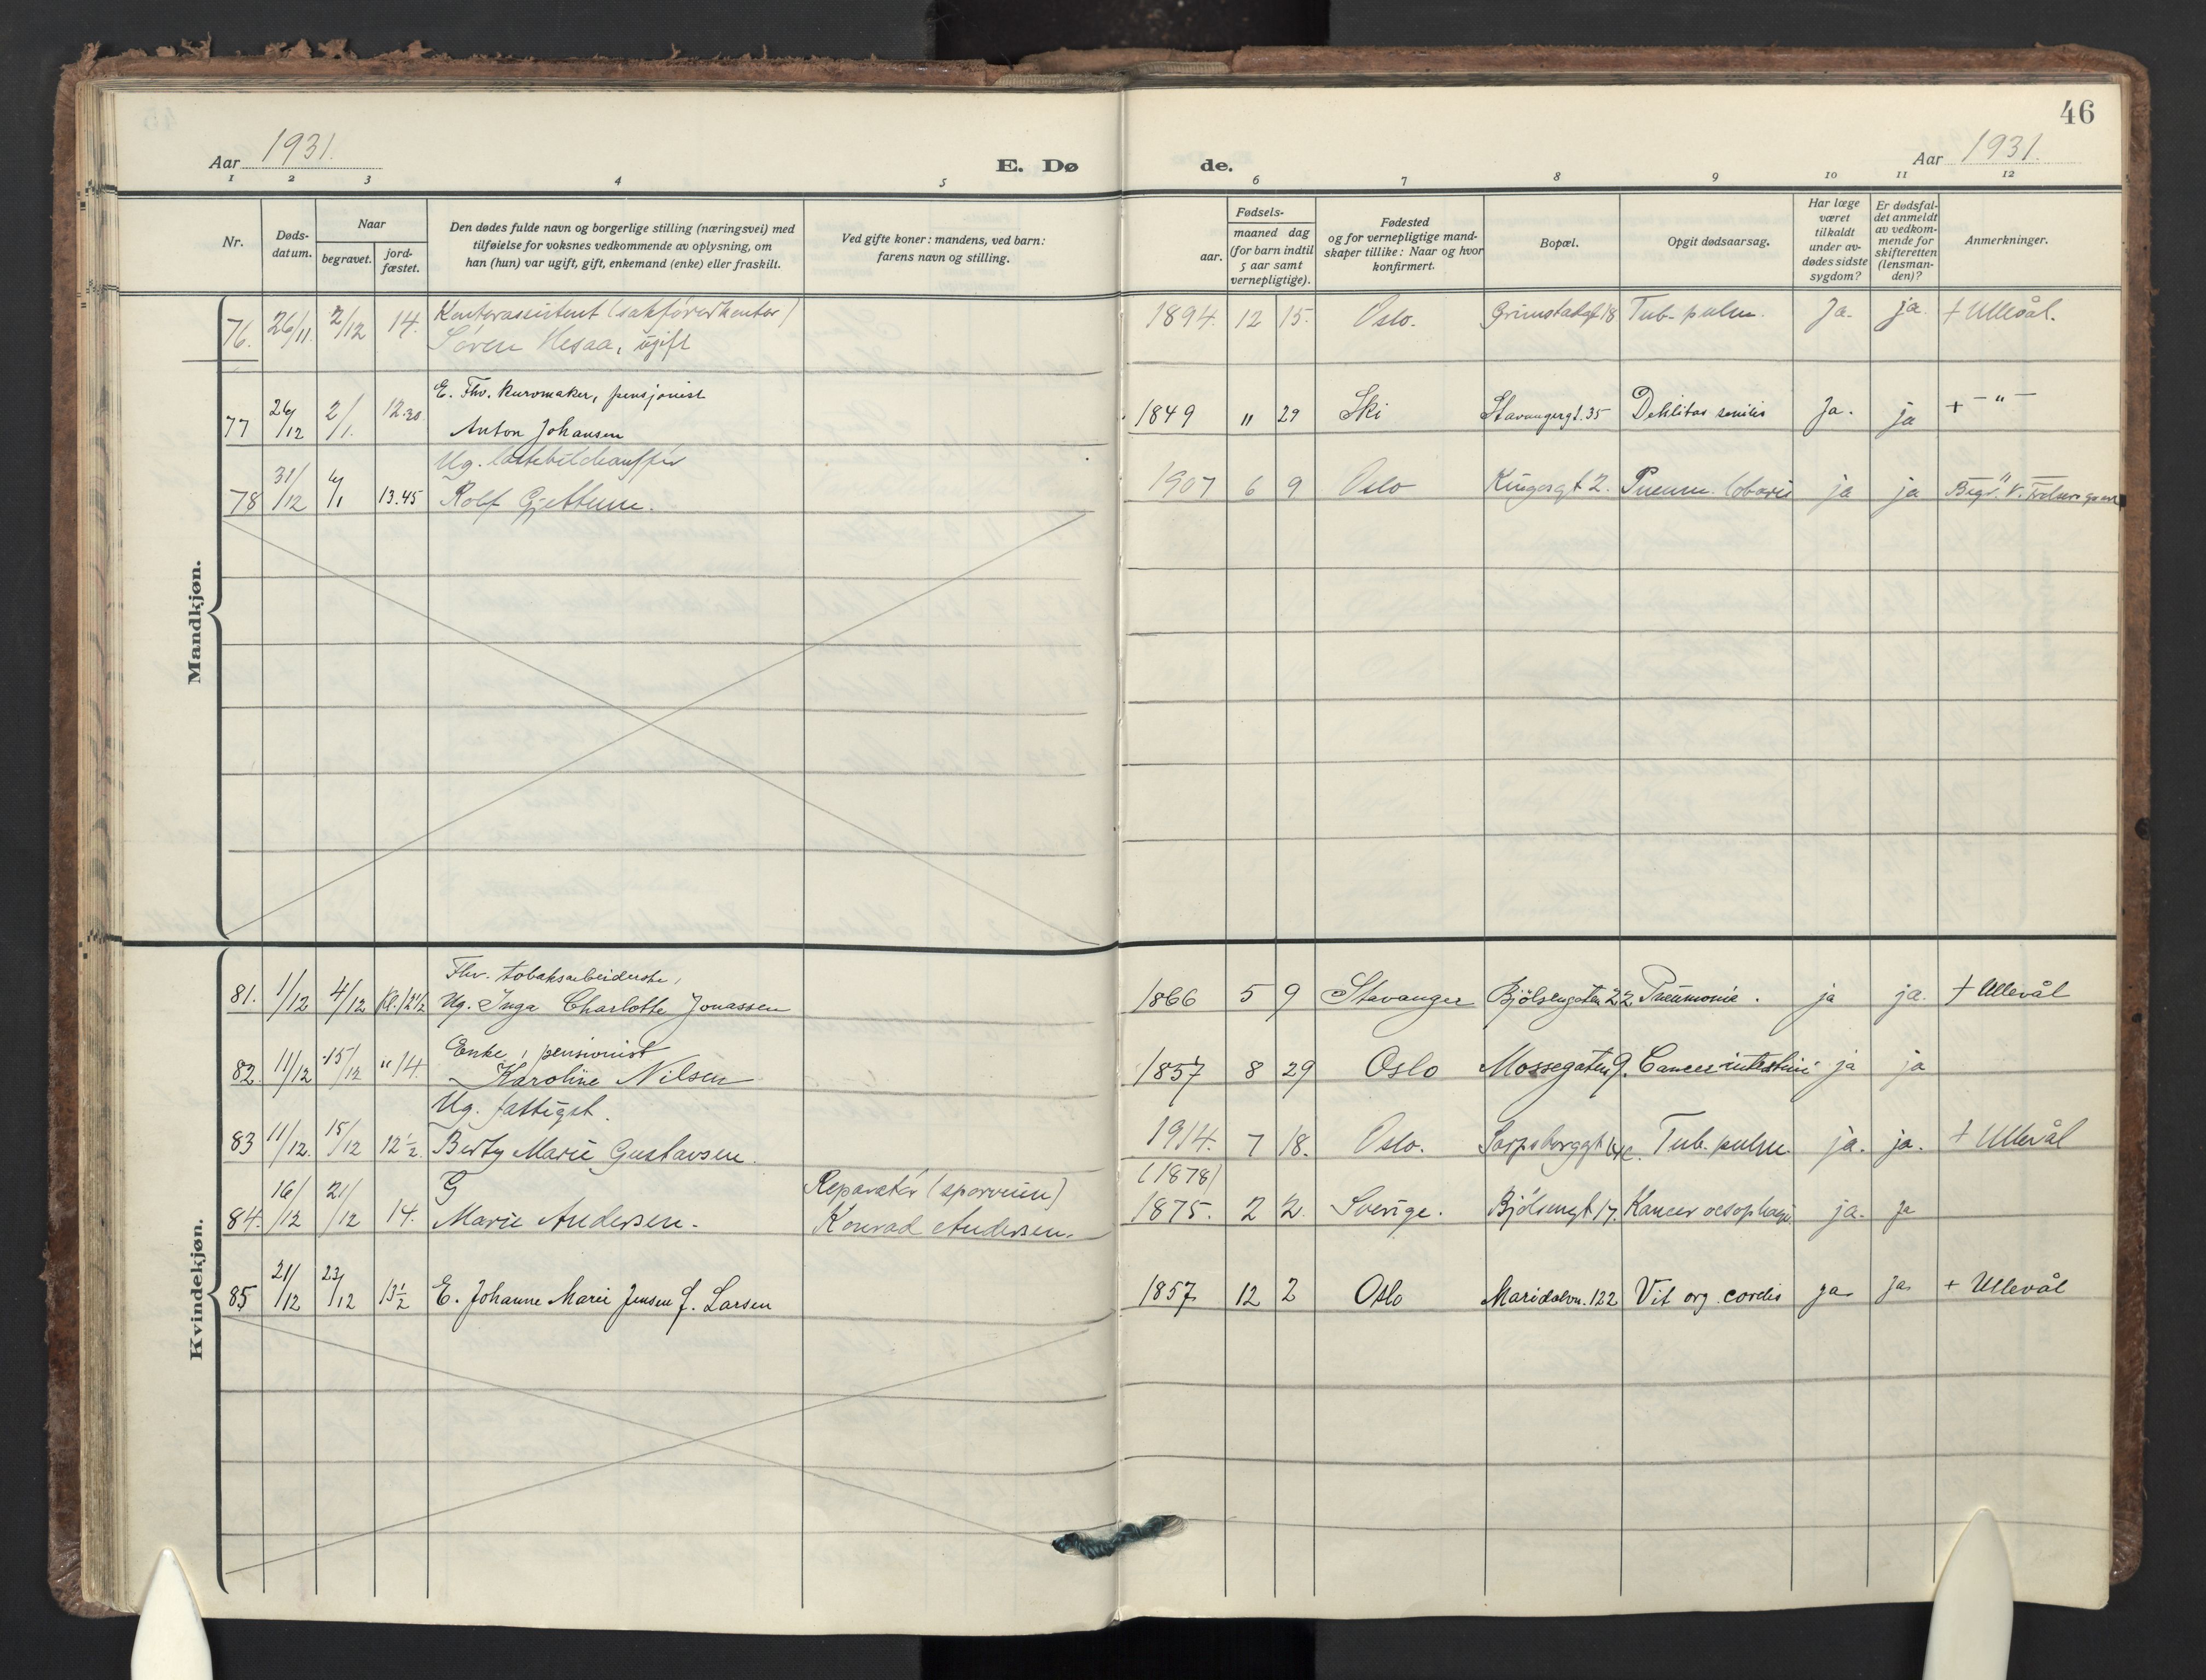 46
Aar 1931.
E. Dø de.
Aar 1931.
1 2 3 4 5 6 7 8 9 10 11 12
Nr.
Døds-
datum.
Naar
begravet.
jord-
fæstet.
Den dødes fulde navn og borgerlige stilling (næringsvei) med
tilføielse for voksnes vedkommende av oplysning, om
han (hun) var ugift, gift, enkemand (enke) eller fraskilt.
Ved gifte koner: mandens, ved barn:
farens navn og stilling.
Fødsels-
aar.
maaned dag
(for barn indtil
5 aar samt
vernepligtige).
Fødested
og for vernepligtige mand-
skaper tillike: Naar og hvor
konfirmert.
Bopæl.
Opgit dødsaarsag.
Har læge
været
tilkaldt
under av-
dødes sidste
sygdom?
Er dødsfal-
det anmeldt
av vedkom-
mende for
skifteretten
(lensman-
den)?
Anmerkninger.
Mandkjøn.
Kontorassistent (sakførerkontor)
76. 26/11. 2/12 14. Søren Hesaa, ugift 1894. 12 15. Oslo. Grimstadgt 18 Tub. pulm. Ja. ja. + Ullevål.
E. Fhv. kurvmaker, pensjonist
77 26/12 2/1. 12.30 Anton Johansen 1849 " 29 Ski Stavangergt. 35 Debilitas senilis Ja. ja + - " -
Ug. lastebilchauffør
78 31/12 4/1 13.45 Rolf Gjettum. 1907 6 9 Oslo Kingosgt 2. Pneum. lobaris ja ja Begr. v.
Kvindekjøn.
Fhv. tobaksarbeiderske,
81. 1/12 4/12 Kl. 12 1/2 Ug. Inga Charlotte Jonassen 1866 5 9 Stavanger Bjölsengaten 22 Pneumonie. ja ja. + Ullevål
Enke, pensionist
82. 11/12 15/12 " 14. Karoline Nilsen 1857 8 29 Oslo Mossegaten 9. Cancer intestini ja ja
Ug. fattigst.
83 11/12. 15/12 12 1/2. Berty Marie Gustavsen. 1914. 7 18. Oslo. Sarpsborggt Tub. pulm. ja. ja. + Ullevål
G Reparatør (sporveien) (1878)
84. 16/12 21/12 14. Marie Andersen. Konrad Andersen. 1875. 2 2. Sverige. Bjölsengt 17. Kancer oesophagi. ja. ja
85 21/12 23/12 13 1/2 E. Johanne Marie Jensen f. Larsen 1857 12 2 Oslo Maridalsvn. 122 Vit org. cordis ja. ja. + Ullevål